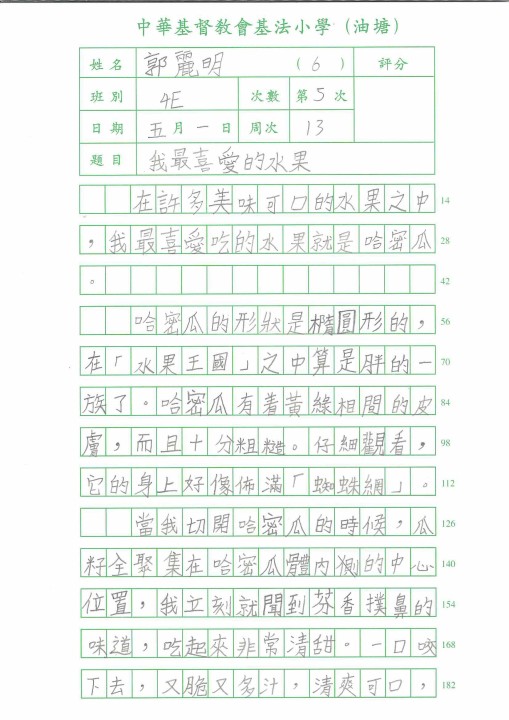 中華基督教會基法小學（油塘）
姓名 郭麗明 （6） 評分
班別 4E 次數 第5次
日期 五月一日 周次 13
題目 我最喜愛的水果
在許多美味可口的水果之中 14
，我最喜愛吃的水果就是哈密瓜 28
。 42
哈密瓜的形狀是橢圓形的， 56
在「水果王國」之中算是胖的一 70
族了。哈密瓜有着黃綠相間的皮 84
膚，而且十分粗糙。仔細觀看， 98
它的身上好像佈滿「蜘蛛網」。 112
當我切開哈密瓜的時候，瓜 126
籽全聚集在哈密瓜體內側的中心 140
位置，我立刻就聞到芬香撲鼻的 154
味道，吃起來非常清甜。一口咬 168
下去，又脆又多汁，清爽可口， 182